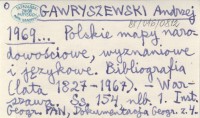 GAWRYSZEWSKI Andrzej
1969... Polskie mapy naro-
dowościowe, wyznaniowe
i językowe. Bibliografia
(lata 1827-1967). - War-
szawa. Ss. 154. nlb. 1. Inst.
Geogr. PAN, Dokumentacja Geogr. z. 4.